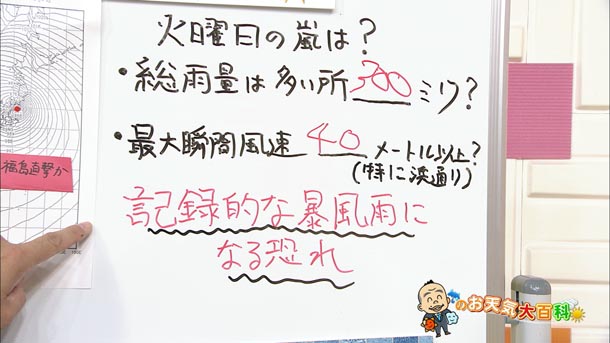 火曜日の嵐は?
・総雨量は多い所 200 ミリ?
・最大瞬間風速 40 メートル以上?
(特に浜通り)
記録的な暴風雨に
なる恐れ
福島直撃か
のお天気大百科